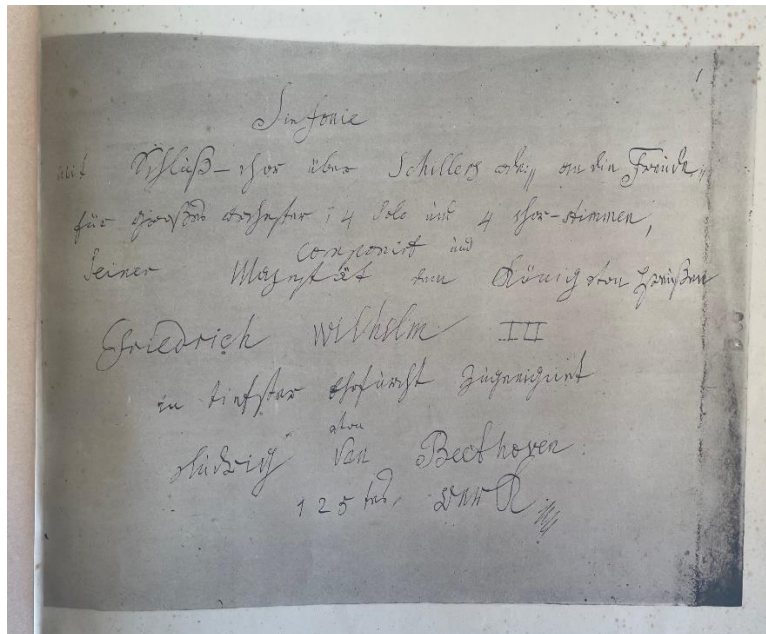 1
Sinfonie
mit Schluß-chor über Schillers ode;, an die Freude,,
für großes orchester, 4 Solo und 4 chor-stimmen,
componirt und
Seiner Majestät dem König von Preußen
Friedrich Wilhelm III
in tiefster Ehrfurcht zugeeignet
von
Ludwig van Beethoven.
125tes Werk